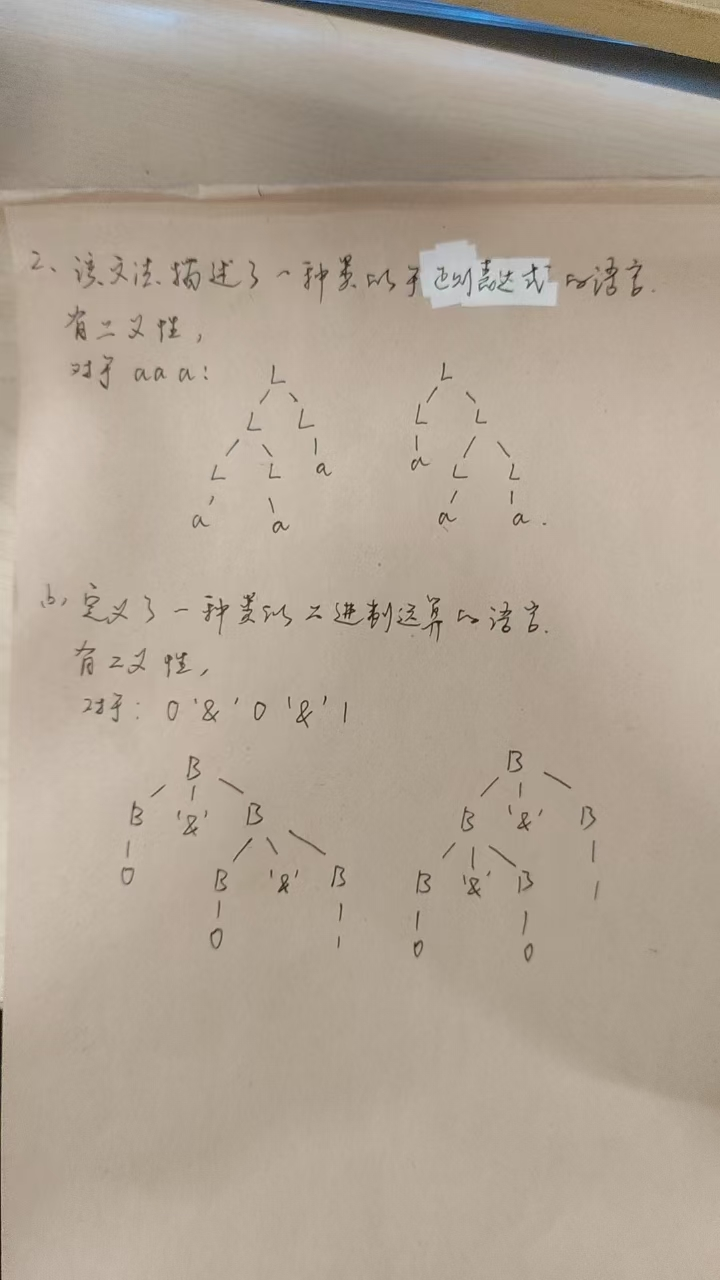 2、该文法描述了一种类似于正则表达式的语言.
有二义性,
对于 aaa:
L L
L L L L
L L a a L L
a a a a.
b、定义了一种类似二进制运算的语言.
有二义性,
对于: 0 '&' 0 '&' 1
B B
B '&' B B '&' B
0 B '&' B B '&' B 1
0 1 0 0